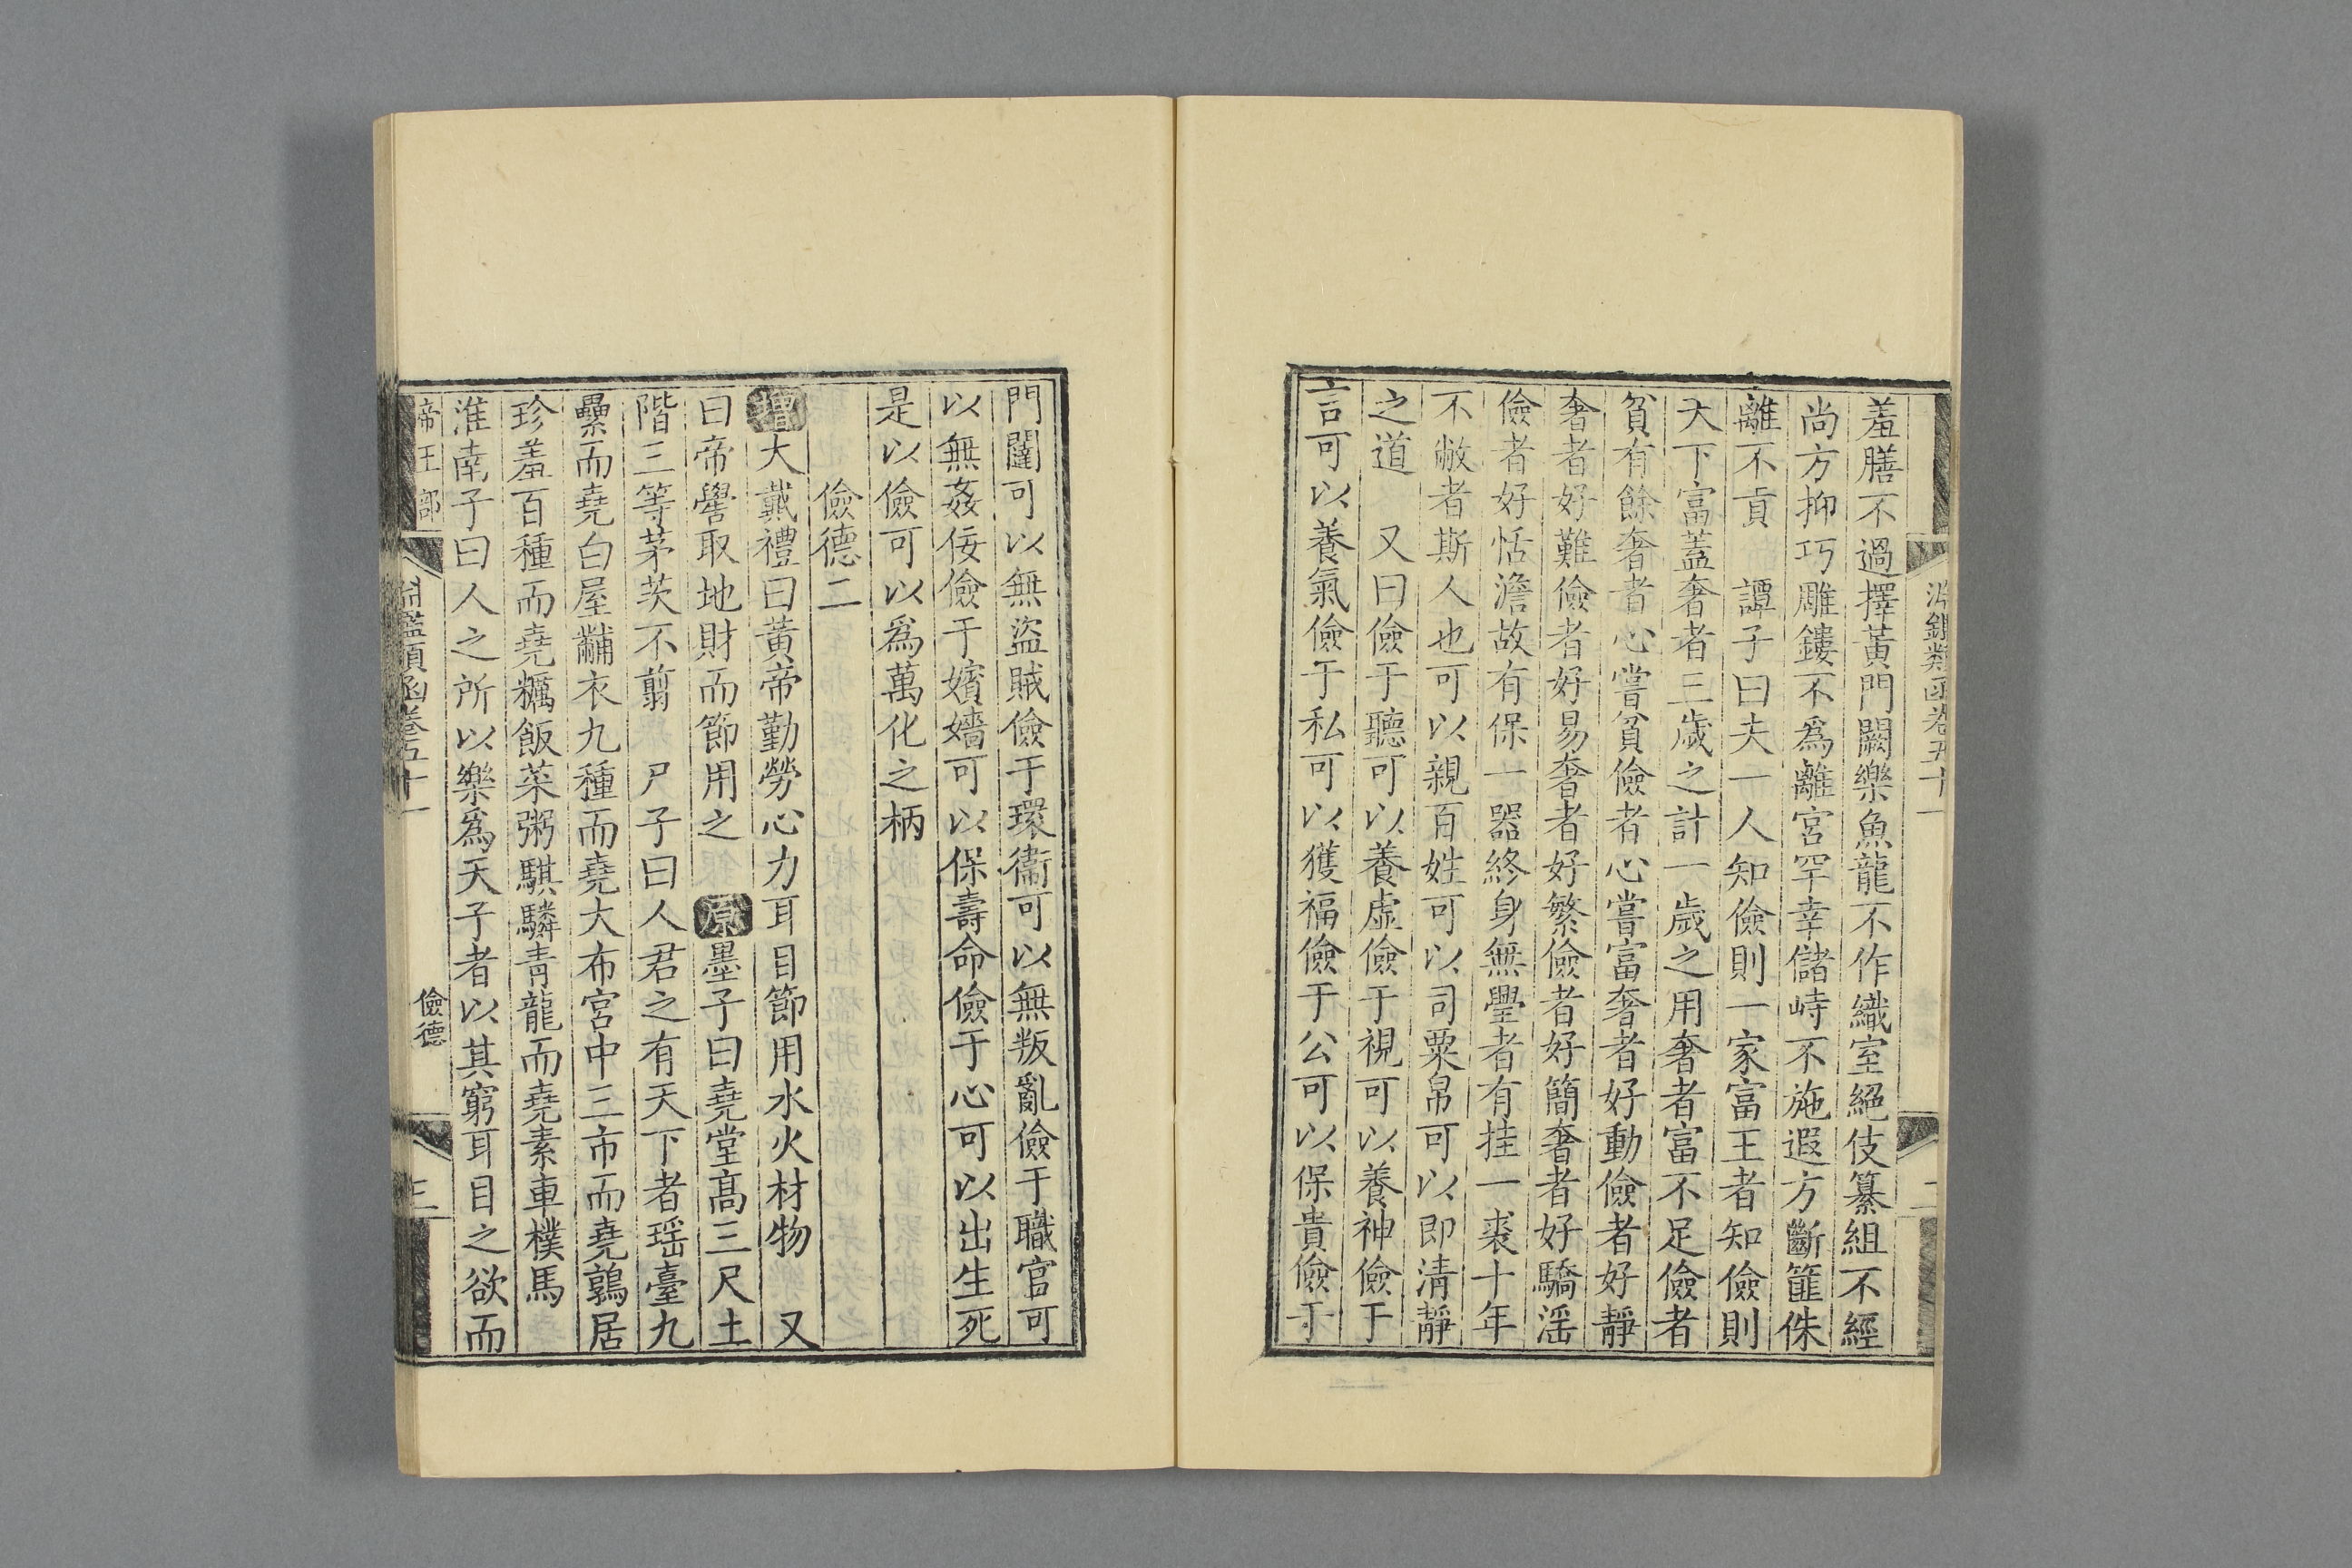 淵鑑類函卷五十一
二
羞膳不過擇黃門闕樂魚龍不作織室絕伎纂組不經
尚方抑巧雕鏤不爲離宮罕幸儲峙不施遐方斷篚侏
離不貢 譚子曰夫一人知儉則一家富王者知儉則
天下富蓋奢者三歲之計一歲之用奢者富不足儉者
貧有餘奢者心嘗貧儉者心嘗富奢者好動儉者好靜
奢者好難儉者好易奢者好繁儉者好簡奢者好驕滛
儉者好恬澹故有保一器終身無舋者有挂一裘十年
不敝者斯人也可以親百姓可以司粟帛可以即清靜
之道 又曰儉于聽可以養虛儉于視可以養神儉于
言可以養氣儉于私可以獲福儉于公可以保貴儉于
門闥可以無盜賊儉于環衞可以無叛亂儉于職官可
以無姦佞儉于嬪嬙可以保壽命儉于心可以出生死
是以儉可以爲萬化之柄
儉德二
增大戴禮曰黃帝勤勞心力耳目節用水火材物 又
曰帝嚳取地財而節用之 原墨子曰堯堂高三尺土
階三等茅茨不翦 尸子曰人君之有天下者瑶臺九
纍而堯白屋黼衣九種而堯大布宮中三市而堯鶉居
珍羞百種而堯糲飯菜粥騏驎青龍而堯素車樸馬
淮南子曰人之所以樂爲天子者以其窮耳目之欲而
帝王部
淵鑑類函卷五十一
儉德
三